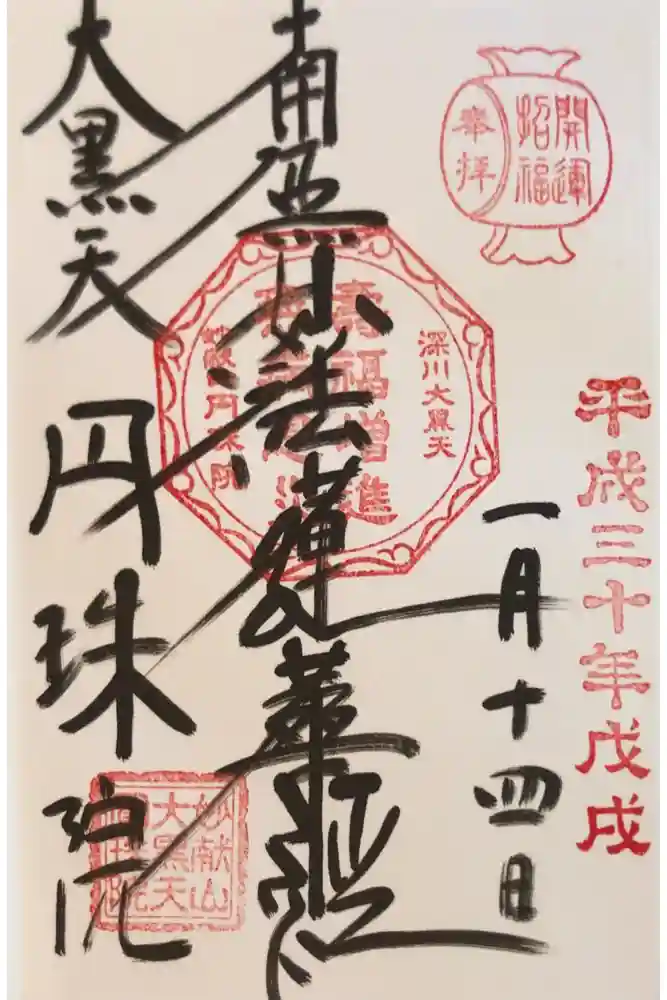 開運
招福
奉拝
平成三十年戊戌
一月十四日
深川大黒天
壽福增進
南無妙法蓮華経
大黒天
円珠院
妙献山
大黒天
圓珠院